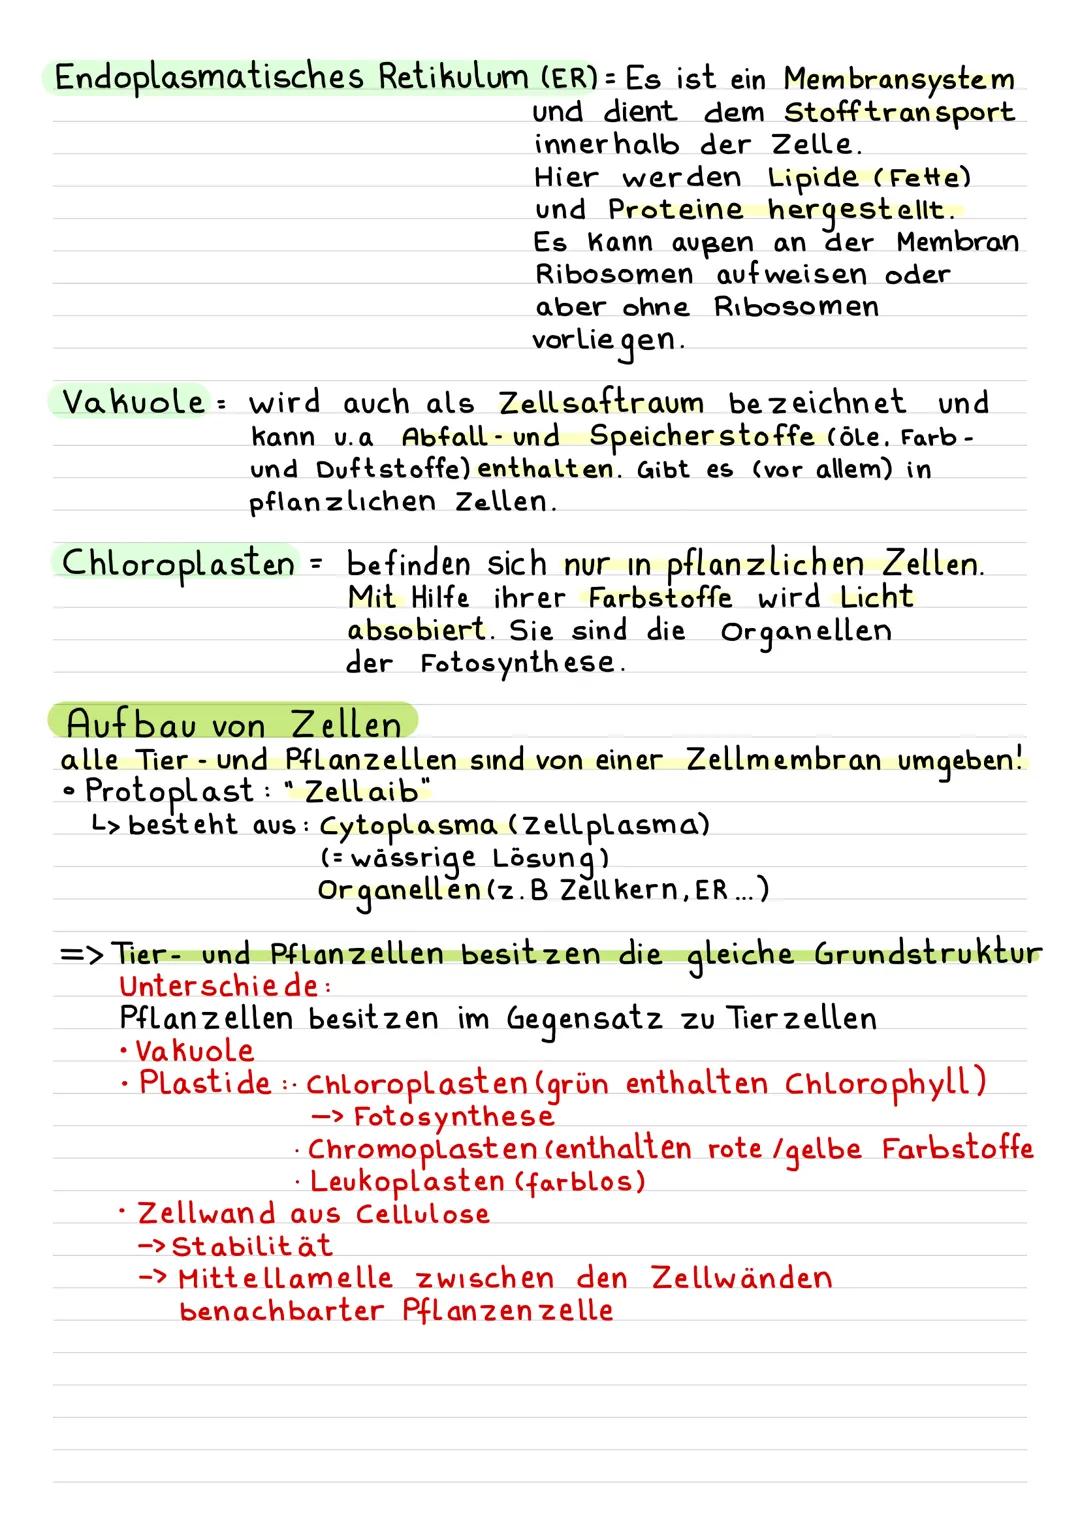 Endoplasmatisches Retikulum (ER) = Es ist ein Membransystem
und dient dem Stofftransport
innerhalb der Zelle.
Hier werden Lipide (Fette)
und Proteine hergestellt.
Es kann außen an der Membran
Ribosomen aufweisen oder
aber ohne Ribosomen
vorliegen.
Vakuole = wird auch als Zellsaftraum bezeichnet und
kann u.a Abfall- und Speicherstoffe (Öle, Farb-
und Duftstoffe) enthalten. Gibt es (vor allem) in
pflanzlichen Zellen.
Chloroplasten = befinden sich nur in pflanzlichen Zellen.
Mit Hilfe ihrer Farbstoffe wird Licht
absobiert. Sie sind die Organellen
der Fotosynthese.
Aufbau von Zellen
alle Tier- und Pflanzellen sind von einer Zellmembran umgeben!
• Protoplast: "Zellaib"
↳ besteht aus: Cytoplasma (Zellplasma)
(= wässrige Lösung)
Organellen (z.B Zellkern, ER ...)
=> Tier- und Pflanzellen besitzen die gleiche Grundstruktur
Unterschiede:
Pflanzellen besitzen im Gegensatz zu Tierzellen
• Vakuole
• Plastide :· Chloroplasten (grün enthalten Chlorophyll)
-> Fotosynthese
· Chromoplasten (enthalten rote /gelbe Farbstoffe
· Leukoplasten (farblos)
• Zellwand aus Cellulose
-> Stabilität
-> Mittellamelle zwischen den Zellwänden
benachbarter Pflanzenzelle